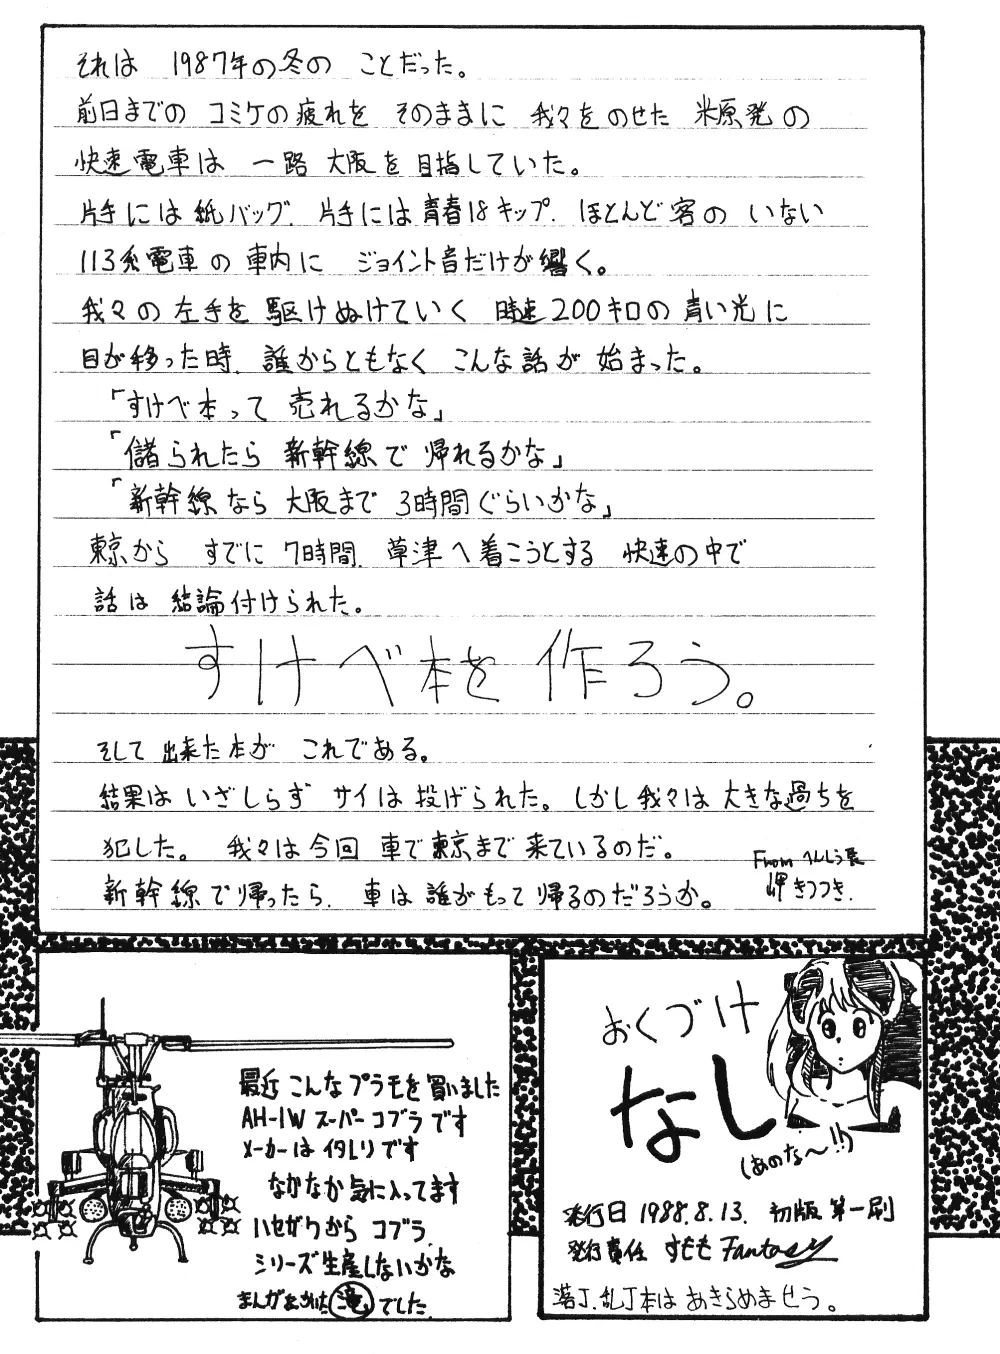 それは 1987年の冬の ことだった。
前日までの コミケの疲れを そのままに 我々をのせた 米原発の
快速電車は 一路 大阪を目指していた。
片手には紙バッグ. 片手には青春18キップ. ほとんど客の いない
113系電車の 車内に ジョイント音だけが響く。
我々の左手を 駆けぬけていく 時速200キロの 青い光に
目が移った時. 誰からともなく こんな話が 始まった。
「すけべ本って 売れるかな」
「儲られたら 新幹線で 帰れるかな」
「新幹線なら 大阪まで 3時間ぐらいかな」
東京から すでに 7時間. 草津へ着こうとする 快速の中で
話は 結論付けられた。
すけべ本を 作ろう。
そして 出来た本が これである。
結果は いざしらず サイは 投げられた。しかし我々は 大きな過ちを
犯した。 我々は今回 車で東京まで 来ているのだ。
新幹線で帰ったら. 車は 誰がもって 帰るのだろうか。
From へんしう長
岬 きつつき.
最近 こんなプラモを 買いました
AH-1W スーパーコブラ です
メーカーは イタレリです
なかなか 気に入ってます
ハセガワから コブラ
シリーズ生産しないかな
まんがをかいた 滝 でした.
おくづけ
なし
(あのな〜!!)
発行日 1988.8.13. 初版 第一刷
発行責任 すもも Fantasy
落丁.乱丁本は あきらめませう。